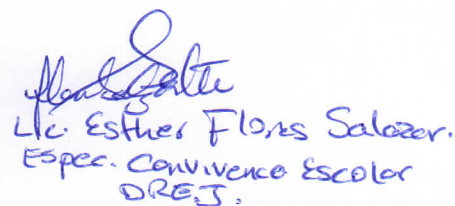 Lic. Esther Flores Salazar.
Espec. Convivenca Escolar
DREJ.